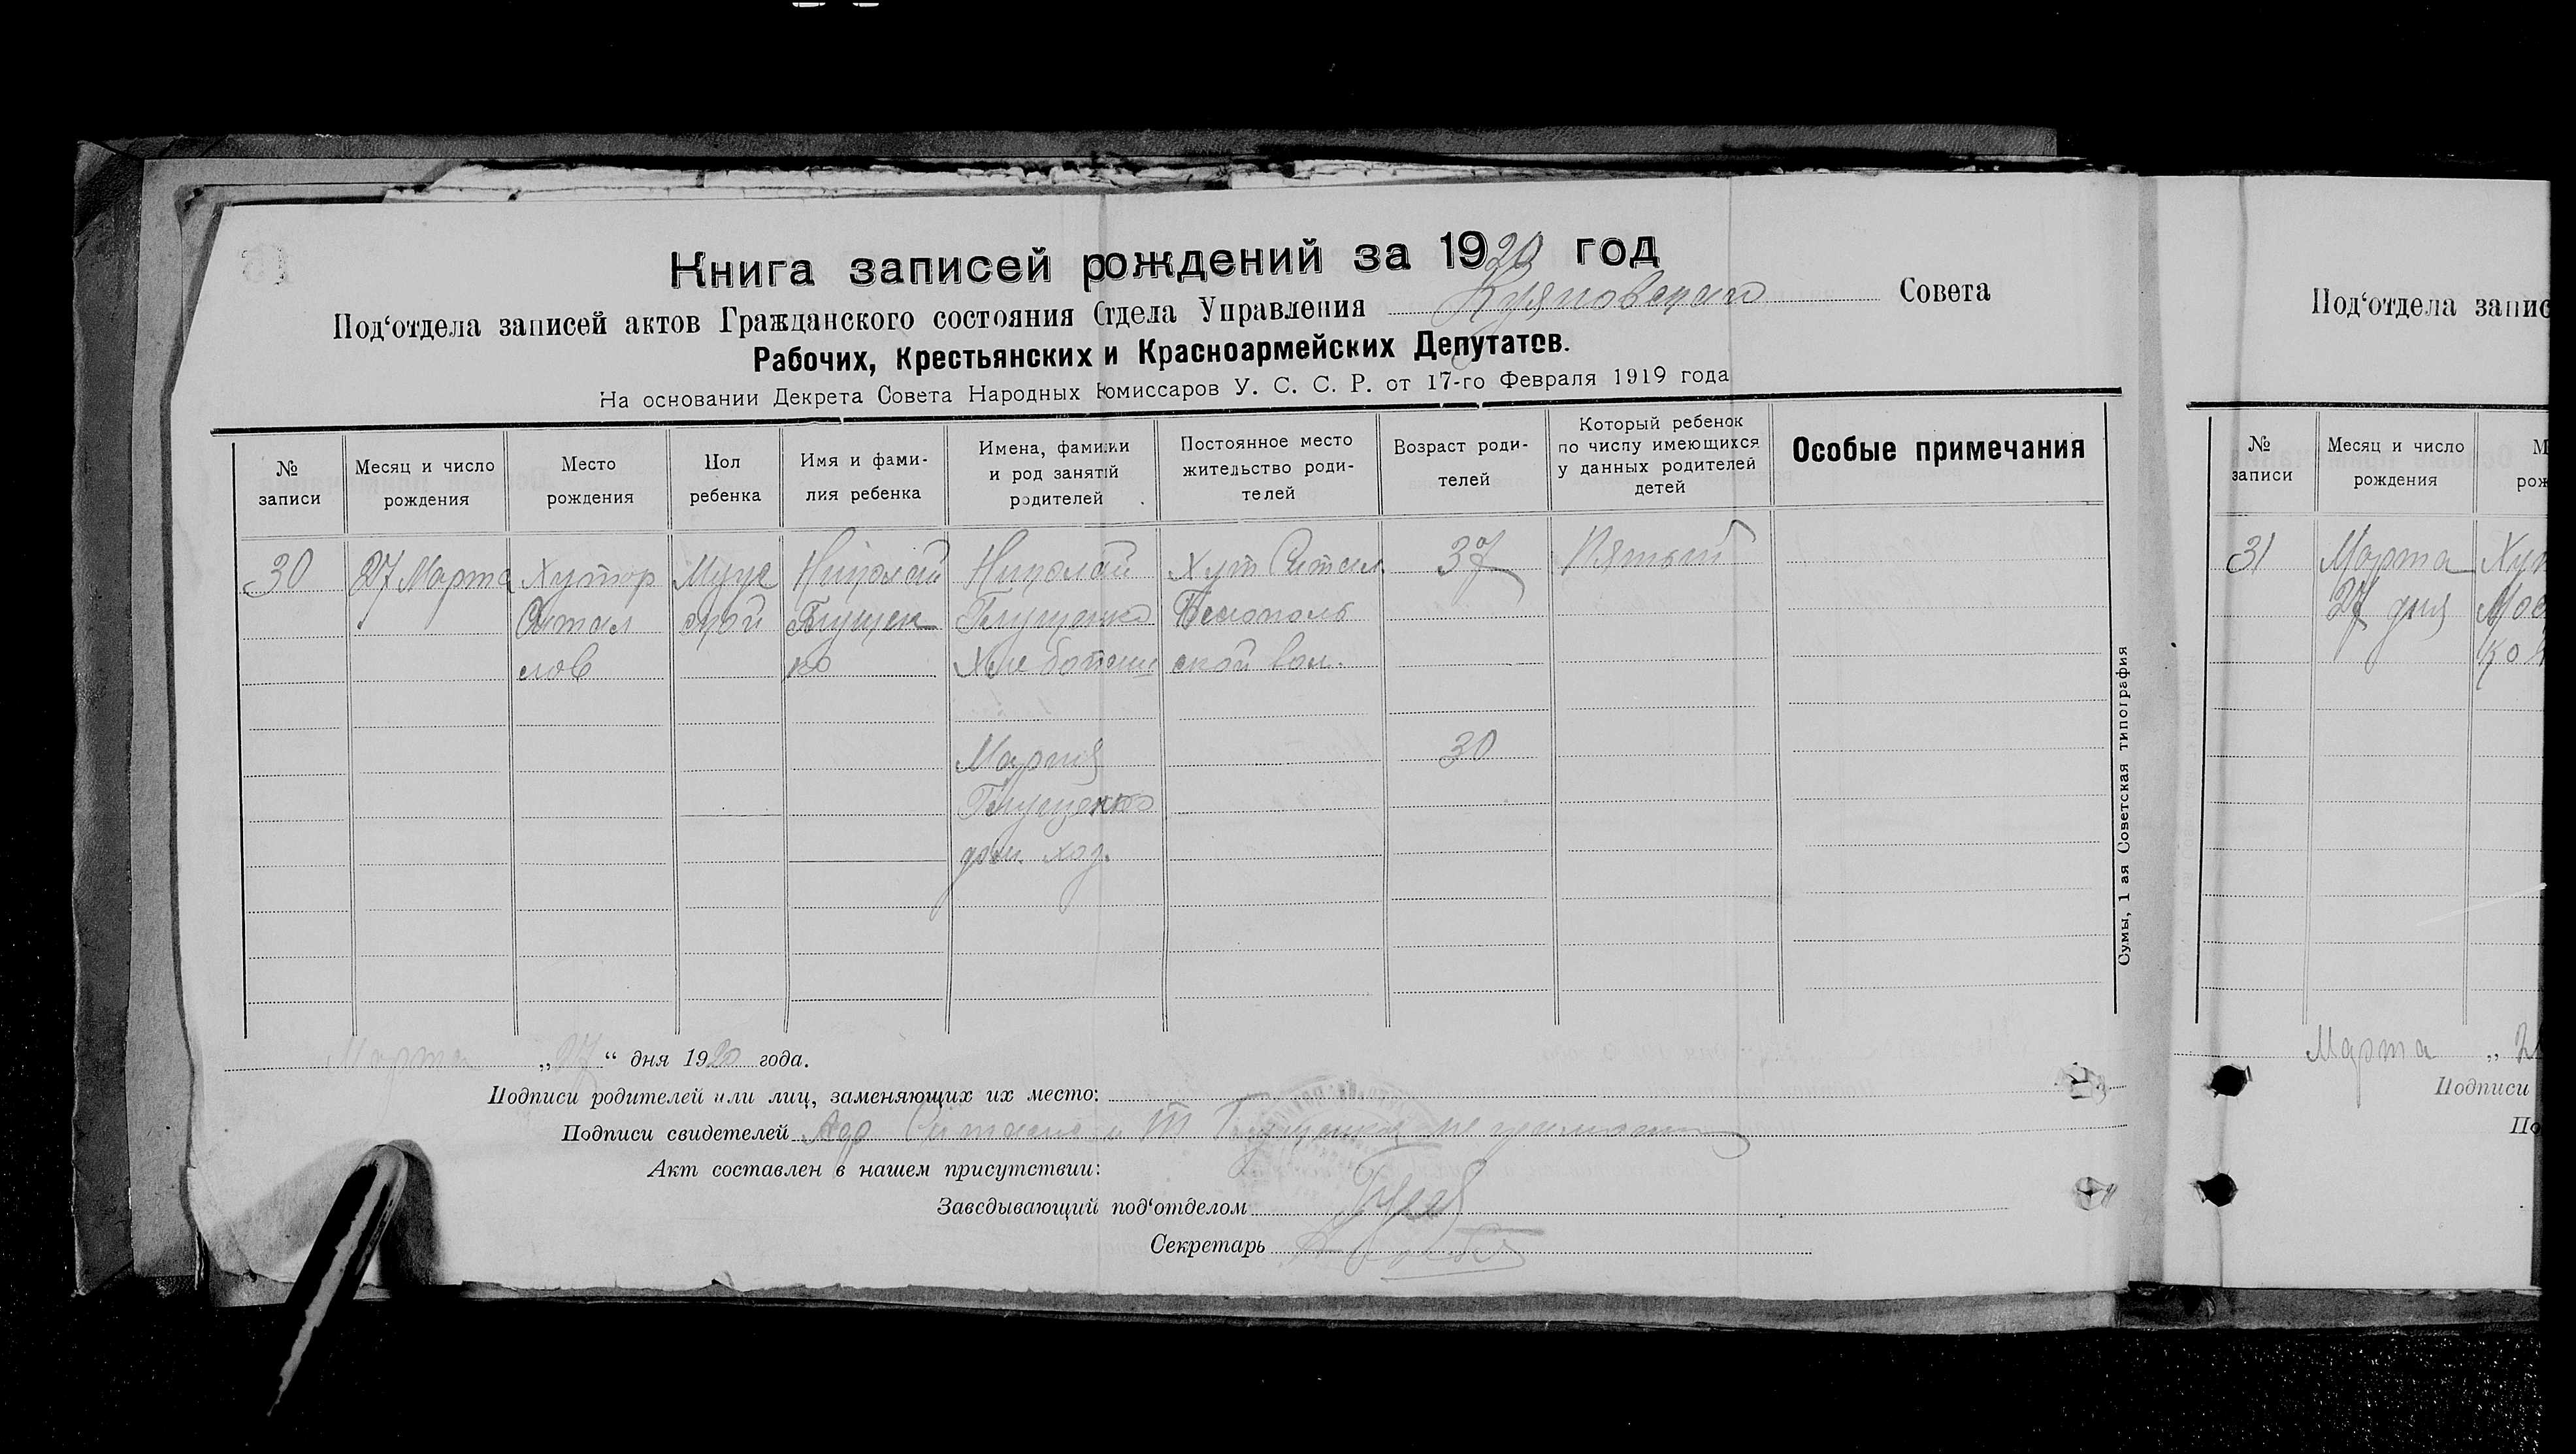 Книга записей рождений за 1920 год
Под‘отдела записей актов Гражданского состояния Отдела Управления Куяновского Совета
Рабочих, Крестьянских и Красноармейских Депутатов.
На основании Декрета Совета Народных Комиссаров У. С. С. Р. от 17-го Февраля 1919 года
№ записи
Месяц и число рождения
Место рождения
Пол ребенка
Имя и фами-
лия ребенка
Имена, фамилии
и род занятий
родителей
Постоянное место
жительство роди-
телей
Возраст роди-
телей
Который ребенок
по числу имеющихся
у данных родителей
детей
Особые примечания
30
27 Марта
Хутор
Ситал
лов
Муж
ской
Николай
Глущен
ко
Николай
Глущенко
Хлебопаш
Мария
Глущенко
дом. хоз.
Хут Ситал.
Белополь
ской вол.
37
30
Пятый
Марта „27“ дня 1920 года.
Подписи родителей или лиц, заменяющих их место:
Подписи свидетелей
Акт составлен в нашем присутствии:
Заведывающий под‘отделом
Секретарь
Сумы, 1 ая Советская типография
Под‘отдела запис
№ записи
Месяц и число рождения
М
рож
31
Марта
27 дня
Хут
Мос
ко
Марта „ 2
Подписи
По